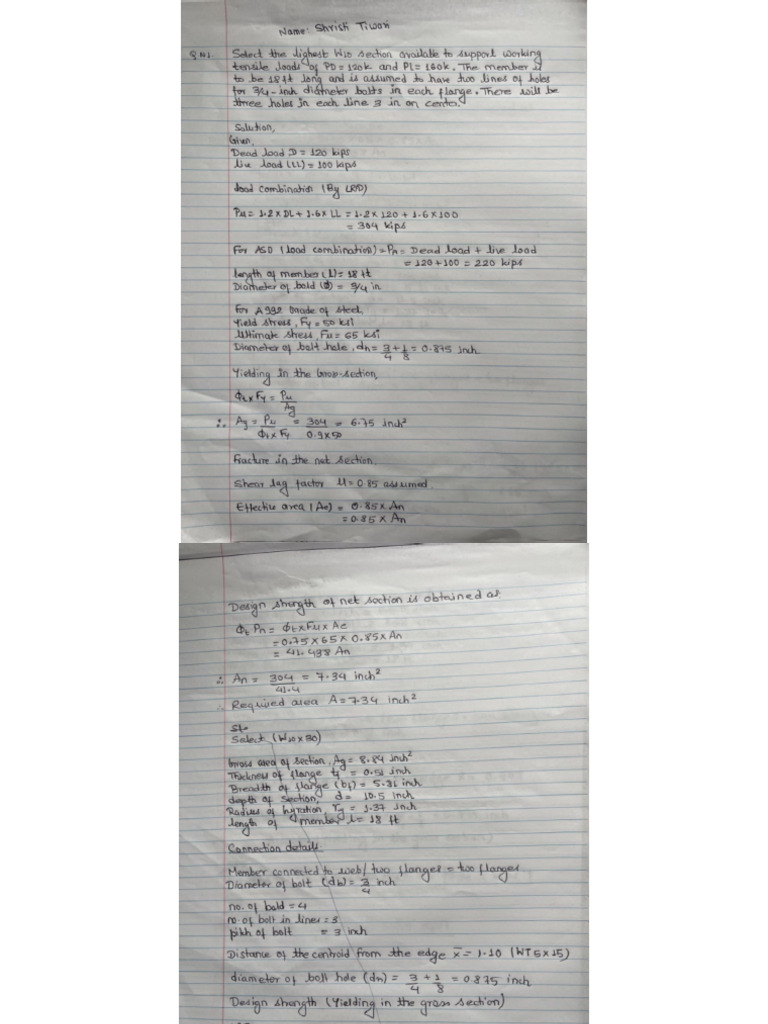 Name: Shristi Tiwari
Q.N1. Select the lighest W10 section available to support working
tensile loads of PD = 120k and PL = 160k. The member is
to be 18 ft long and is assumed to have two lines of holes
for 3/4-inch diameter bolts in each flange. There will be
three holes in each line 3 in on center.
Solution,
Given,
Dead load, D = 120 kips
live load (LL) = 100 kips
load combination (By LRFD)
Pu = 1.2 x DL + 1.6 x LL = 1.2 x 120 + 1.6 x 100
= 304 kips
For ASD (load combination) = PA = Dead load + live load
= 120 + 100 = 220 kips
length of member (L) = 18 ft
Diameter of bold (φ) = 3/4 in
For A992 Grade of steel,
Yield stress, Fy = 50 ksi
Ultimate stress, Fu = 65 ksi
Diameter of bolt hole, dh = 3/4 + 1/8 = 0.875 inch
Yielding in the Gross-section,
Φt x Fy = Pu/Ag
∴ Ag = Pu/(Φt x Fy) = 304/(0.9 x 50) = 6.75 inch²
Fracture in the net section.
Shear lag factor U = 0.85 assumed.
Effective area (Ae) = 0.85 x An
= 0.85 x An
Design strength of net section is obtained as:
Φt Pn = Φt x Fu x Ae
= 0.75 x 65 x 0.85 x An
= 41.438 An
∴ An = 304/41.4 = 7.34 inch²
∴ Required area A = 7.34 inch²
Select (W10 x 30)
Gross area of section, Ag = 8.84 inch²
Thickness of flange tf = 0.51 inch
Breadth of flange (bf) = 5.81 inch
depth of section, d = 10.5 inch
Radius of hyration, ry = 1.37 inch
length of member L = 18 ft
Connection details
Member connected to web/two flanges = two flanges
Diameter of bolt (db) = 3/4 inch
no. of bold = 4
no. of bolt in lines = 3
pitch of bolt = 3 inch
Distance of the centroid from the edge x̄ = 1.10 (WT5x15)
diameter of bolt hole (dh) = 3/4 + 1/8 = 0.875 inch
Design strength (Yielding in the gross section)